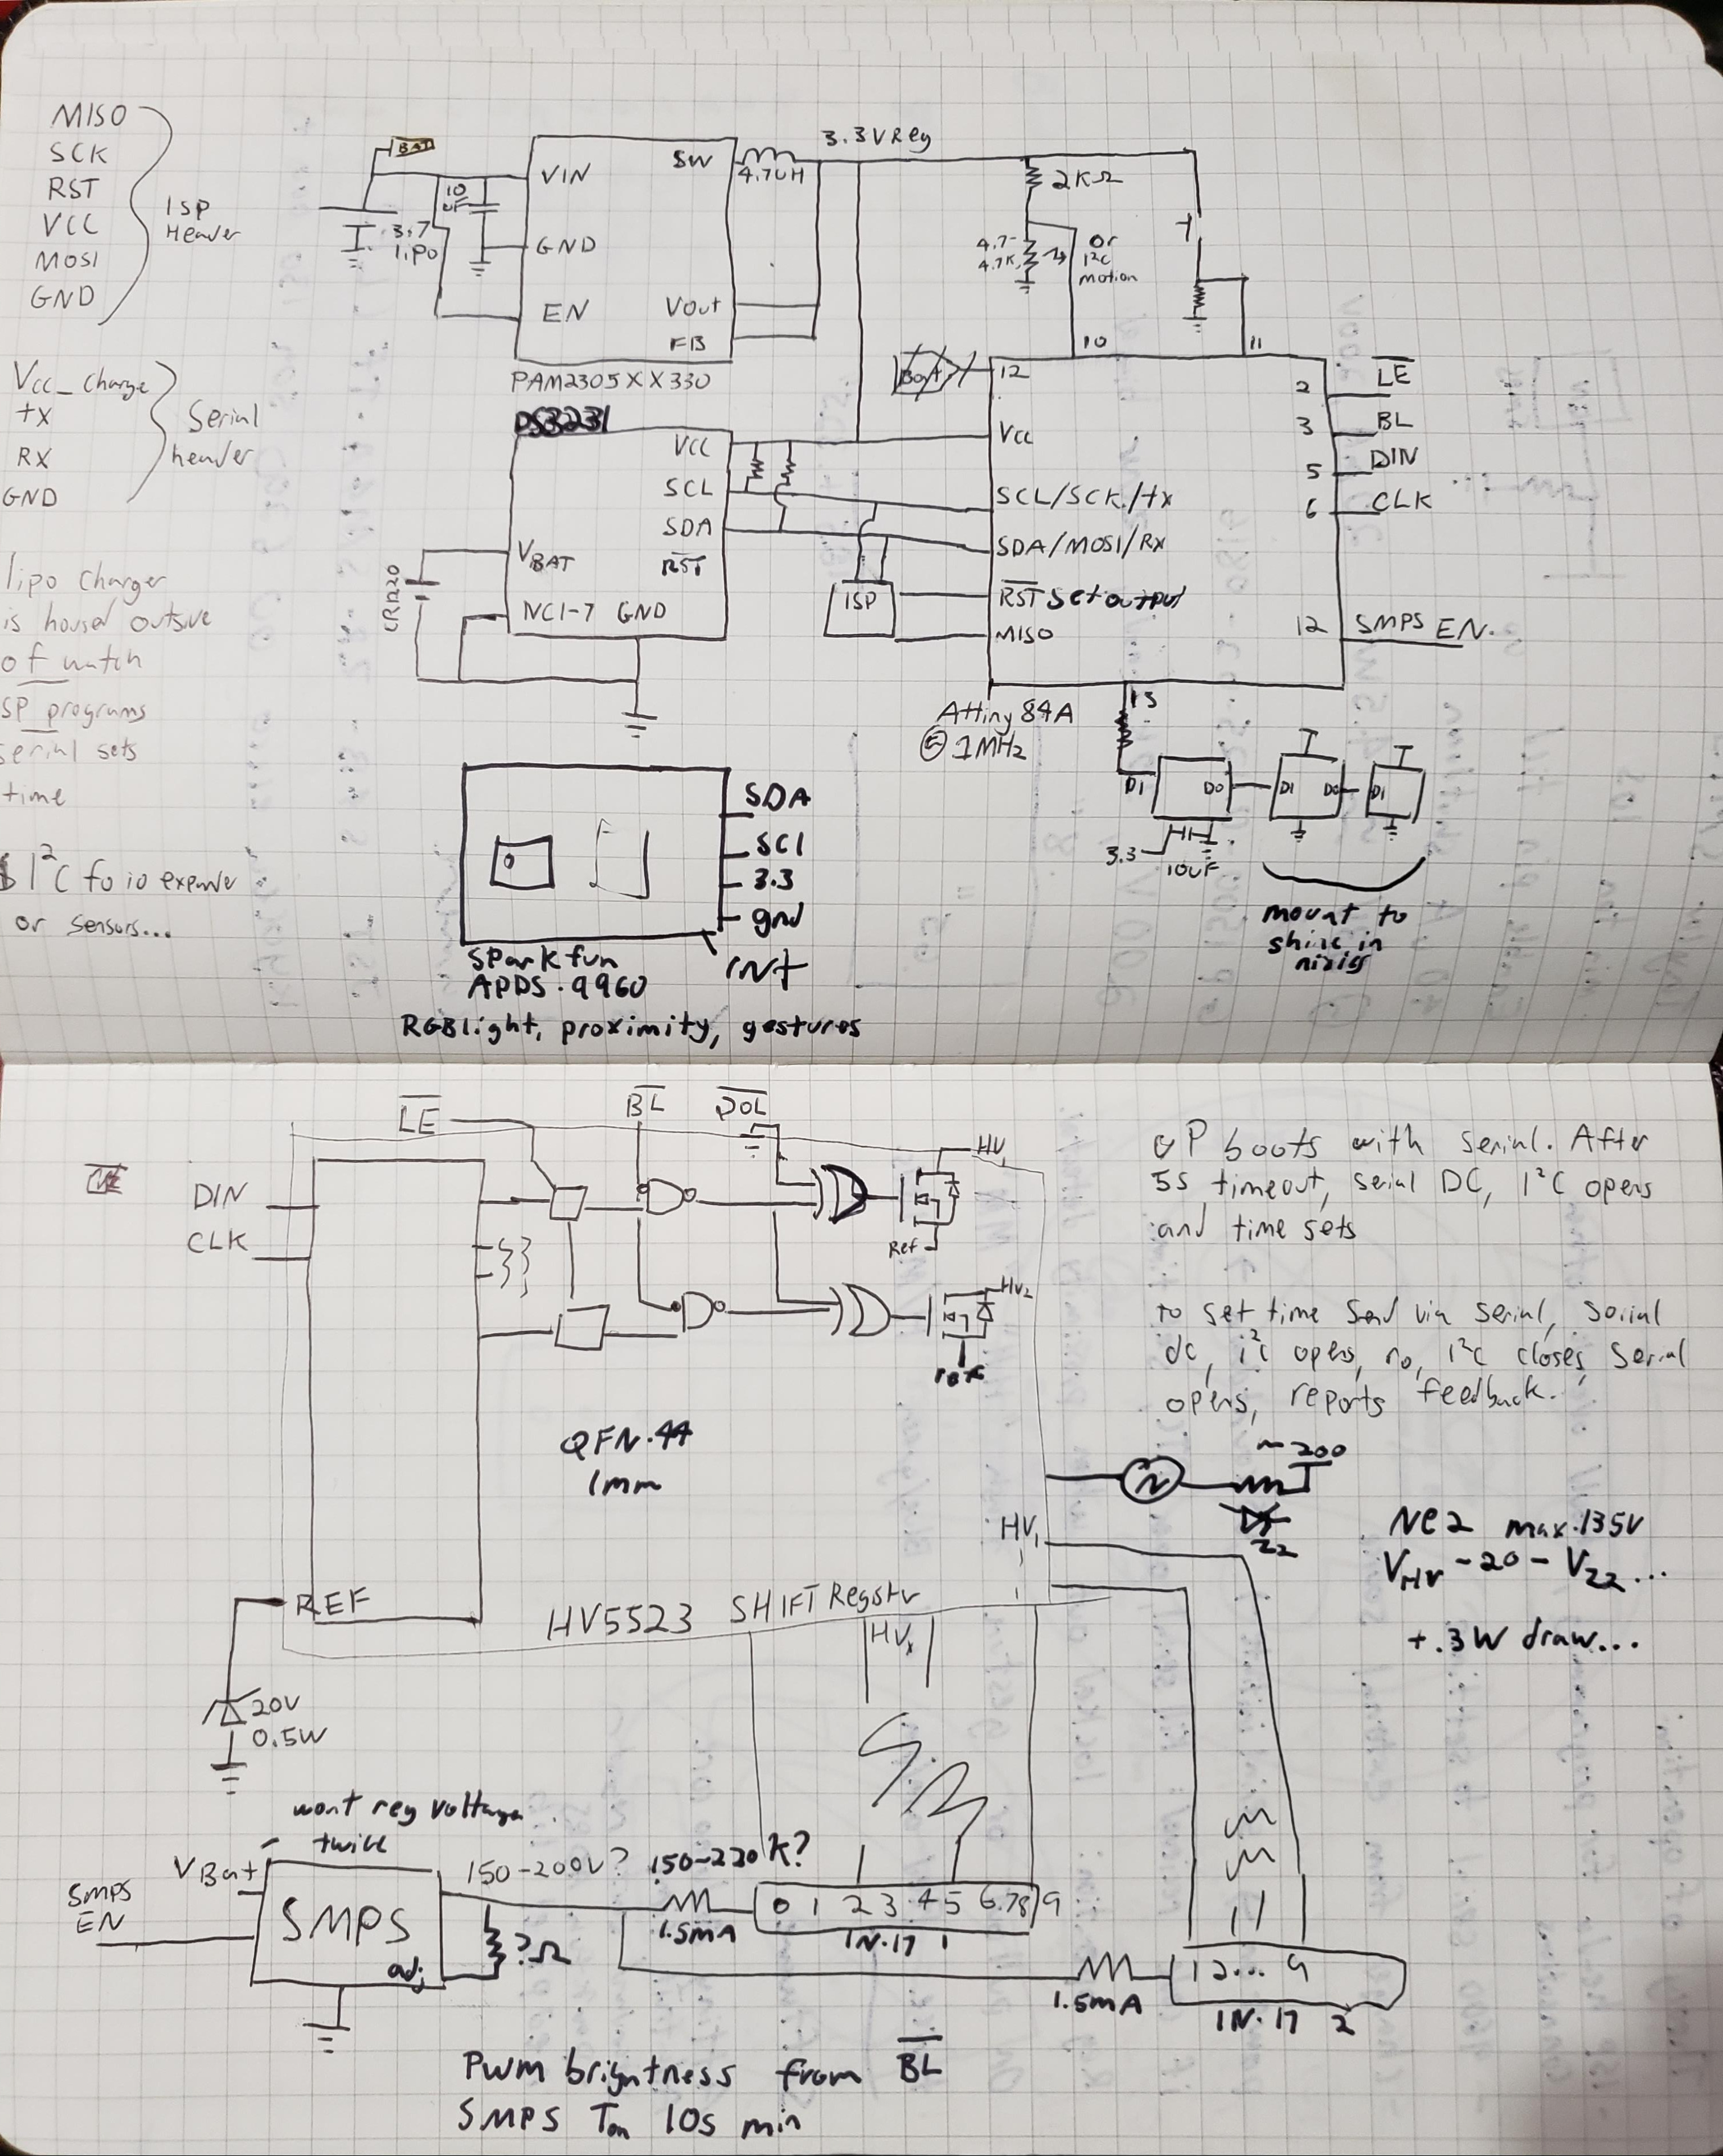 MISO
SCK
RST
VCC
MOSI
GND
ISP
Header
Vcc_Charge
tX
RX
GND
Serial
header
lipo Charger
is housed outside
of watch
SP programs
serial sets
time
I²C to io expender
or sensors...
BAT
3.7
lipo
10
VIN
GND
EN
SW
Vout
FB
PAM2305XX330
4.7uH
3.3VReg
2KΩ
4.7-
4.7K
or
I²C
motion
DS3231
VBAT
NC1-7
GND
VCC
SCL
SDA
RST
ISP
12
Vcc
SCL/SCK/tx
SDA/MOSI/Rx
RST Set output
MISO
Attiny 84A
@1MHz
10
11
13
2
3
5
6
12
LE
BL
DIN
CLK
SMPS EN.
D1
D0
3.3
10uF
D1
D0
D1
mount to
shine in
Sparkfun
APDS-9960
SDA
SCl
3.3
gnd
INT
RGBlight, proximity, gestures
DIN
CLK
LE
BL
POL
REF
20V
0.5W
HV5523 SHIFT Register
QFN-44
1mm
Ref
HV1
HV2
HV1
HV1
~200
Z2
SMPS
EN
VBat
SMPS
adj
want reg voltage
twice
?Ω
150-200V?
150-220K?
1.5mA
0 1 2 3 4 5 6 7 8 9
IN-17 1
1.5mA
1 2 ... 9
IN-17 2
PWM brigtness from BL
SMPS Tm 10s min
uP boots with serial. After
5s timeout, serial DC, I²C opens
and time sets
to set time send via serial, serial
dc, i²c opens, no, i²c closes, serial
opens, reports feedback.
NE2 max 135V
VHV - 20 - VZ2...
+ .3W draw...